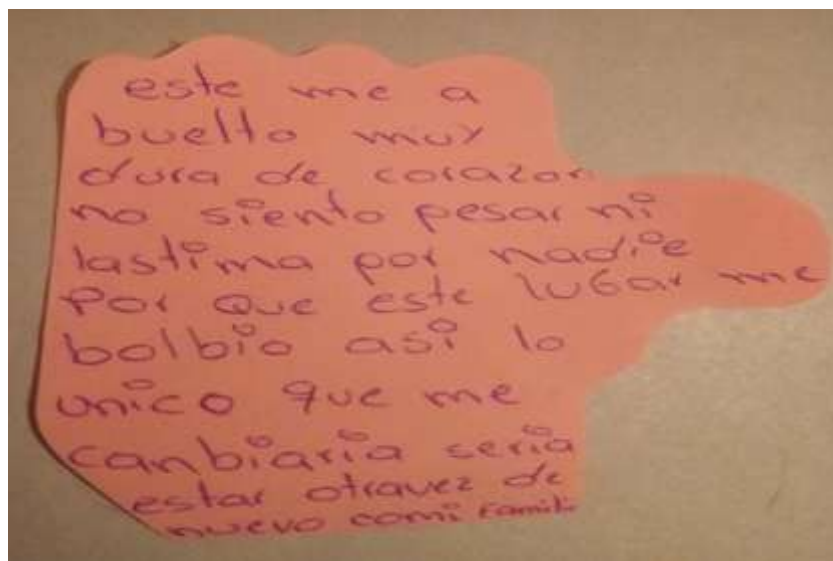 este me a
buelto muy
dura de corazon
no siento pesar ni
lastima por nadie
Por que este lugar me
bolbio asi lo
unico que me
canbiaria seria
estar otravez de
nuevo comi famili